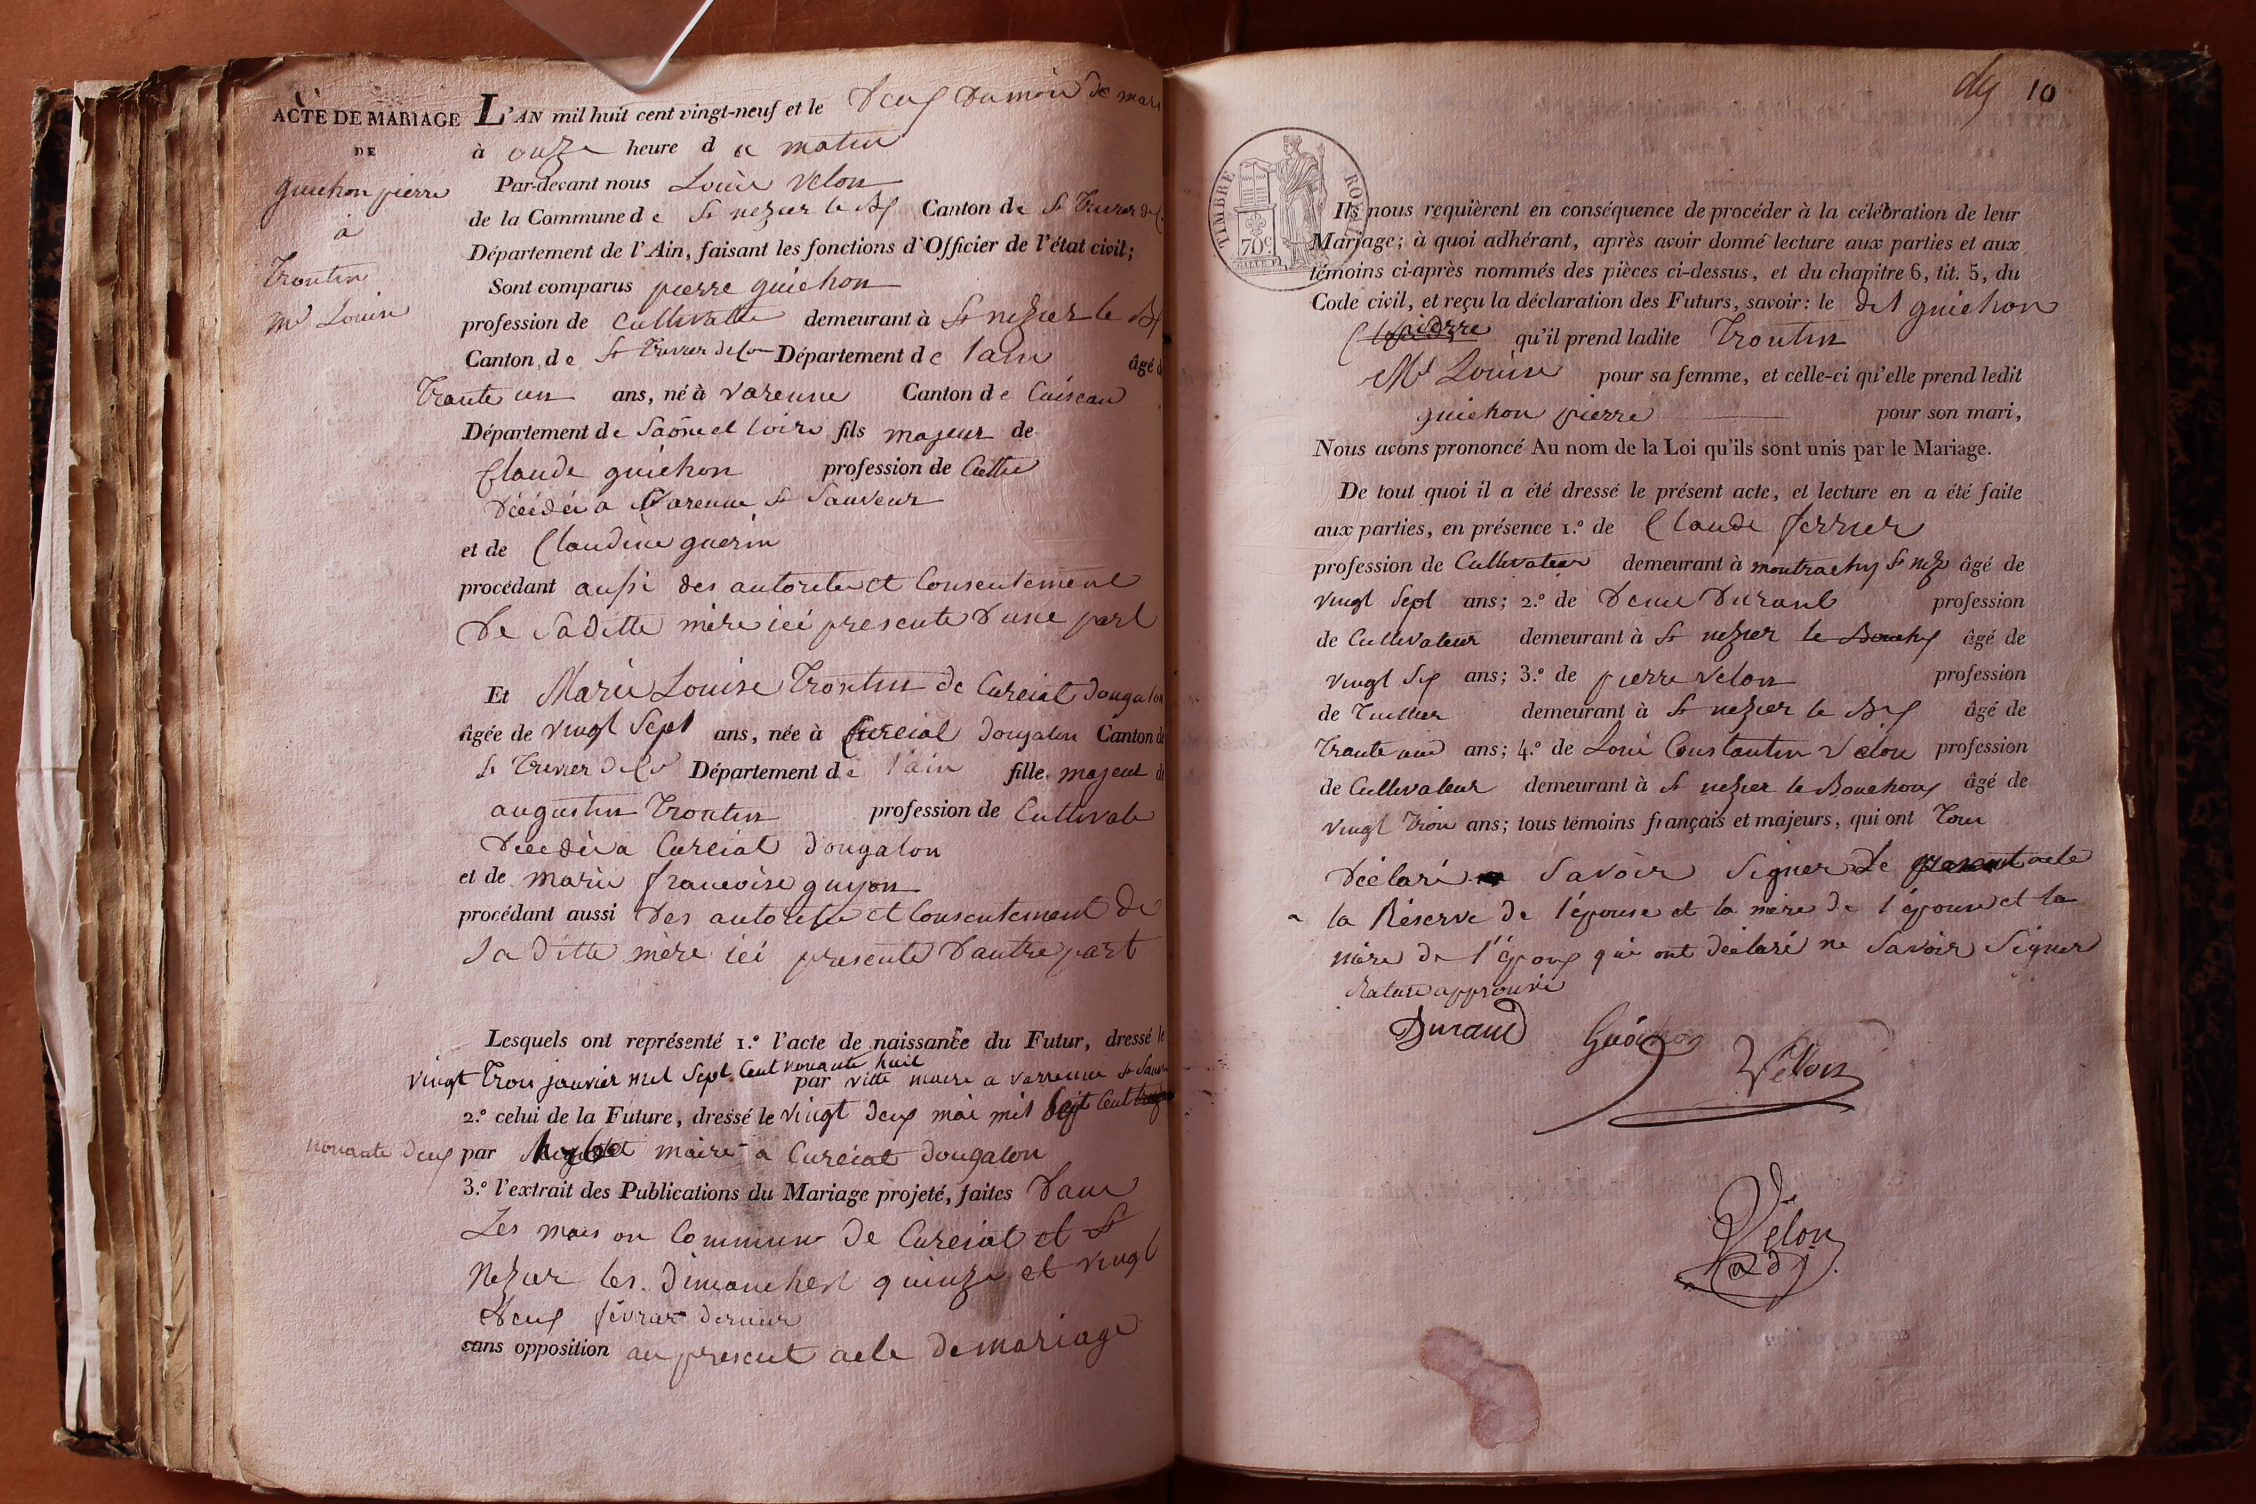 ACTE DE MARIAGE
DE
guichon pierre
à
Troutin
Mie Louise
L'AN mil huit cent vingt-neuf et le Deux Du mois de mars
à onze heure d u matin
Par-devant nous Louis Velon
de la Commune de St nezier le Bx Canton de St Trivier de
Département de l'Ain, faisant les fonctions d'Officier de l'état civil;
Sont comparus pierre guichon
profession de Cultivateur demeurant à St nezier le Bx
Canton de St Trivier de Cou Département de lain âgé d
Trante un ans, né à Varenne Canton de Cuiseau
Département de Saône et loire fils majeur de
Claude guichon profession de Culttr
Décédé a Varenne St Sauveur
et de Claudine guerin
procédant aussi des autorité et Consentement
De Saditte mère ici presente D'une part
Et Marie Louise Troutin de Curciat dongalon
âgée de vingt Sept ans, née à Curciat dongalon Canton de
St Trivier de Cou Département de l'ain fille majeur d
augustin Troutin profession de Cultivate
Décédé a Curciat dongalon
et de marie francoise guyon
procédant aussi Des autorité et Consentement De
Sa Ditte mère ici presente D'autre part
Lesquels ont représenté 1.º l'acte de naissance du Futur, dressé le
vingt trois janvier mil Sept Cent nonante huit
par vitte maire a varrenne St Sauv
2.º celui de la Future, dressé le vingt deux mai mil Sept Cent
nonante deux par maire a Curciat dongalon
3.º l'extrait des Publications du Mariage projeté, faites Dans
Les mais on Commune De Curciat et St
Nezier les Dimanches quinze et vingt
Deux févrar dernier
sans opposition au present acte De mariage
dix 10
TIMBRE ROYAL
70c
Ils nous requièrent en conséquence de procéder à la célébration de leur
Mariage; à quoi adhérant, après avoir donné lecture aux parties et aux
témoins ci-après nommés des pièces ci-dessus, et du chapitre 6, tit. 5, du
Code civil, et reçu la déclaration des Futurs, savoir: le dit guichon
pierre qu'il prend ladite Troutin
Mie Louise pour sa femme, et celle-ci qu'elle prend ledit
guichon pierre pour son mari,
Nous avons prononcé Au nom de la Loi qu'ils sont unis par le Mariage.
De tout quoi il a été dressé le présent acte, et lecture en a été faite
aux parties, en présence 1.º de Claude ferrier
profession de Cultivateur demeurant à montrachy St nez âgé de
vingt Sept ans; 2.º de Denis Durand profession
de Cultivateur demeurant à St nezier le Bouchx âgé de
vingt Six ans; 3.º de pierre Velon profession
de Tuillier demeurant à St nezier le Bx âgé de
Trante ans; 4.º de Loui Constantin Velon profession
de Cultivateur demeurant à St nezier le Bouchoux âgé de
vingt Trois ans; tous témoins français et majeurs, qui ont Tous
Déclaré Savoir Signer Le present acte
a la Réserve De l'épouse et la mère de l'épouse et la
mère De l'époux qui ont déclaré ne Savoir Signer
Rature approuvé
Durand Guichon Vélon
Vélon
adj